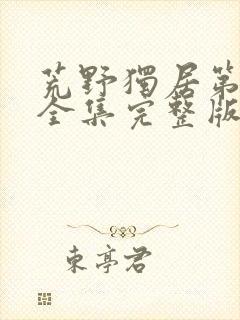 荒野獨居第
全集完整版
東亭君